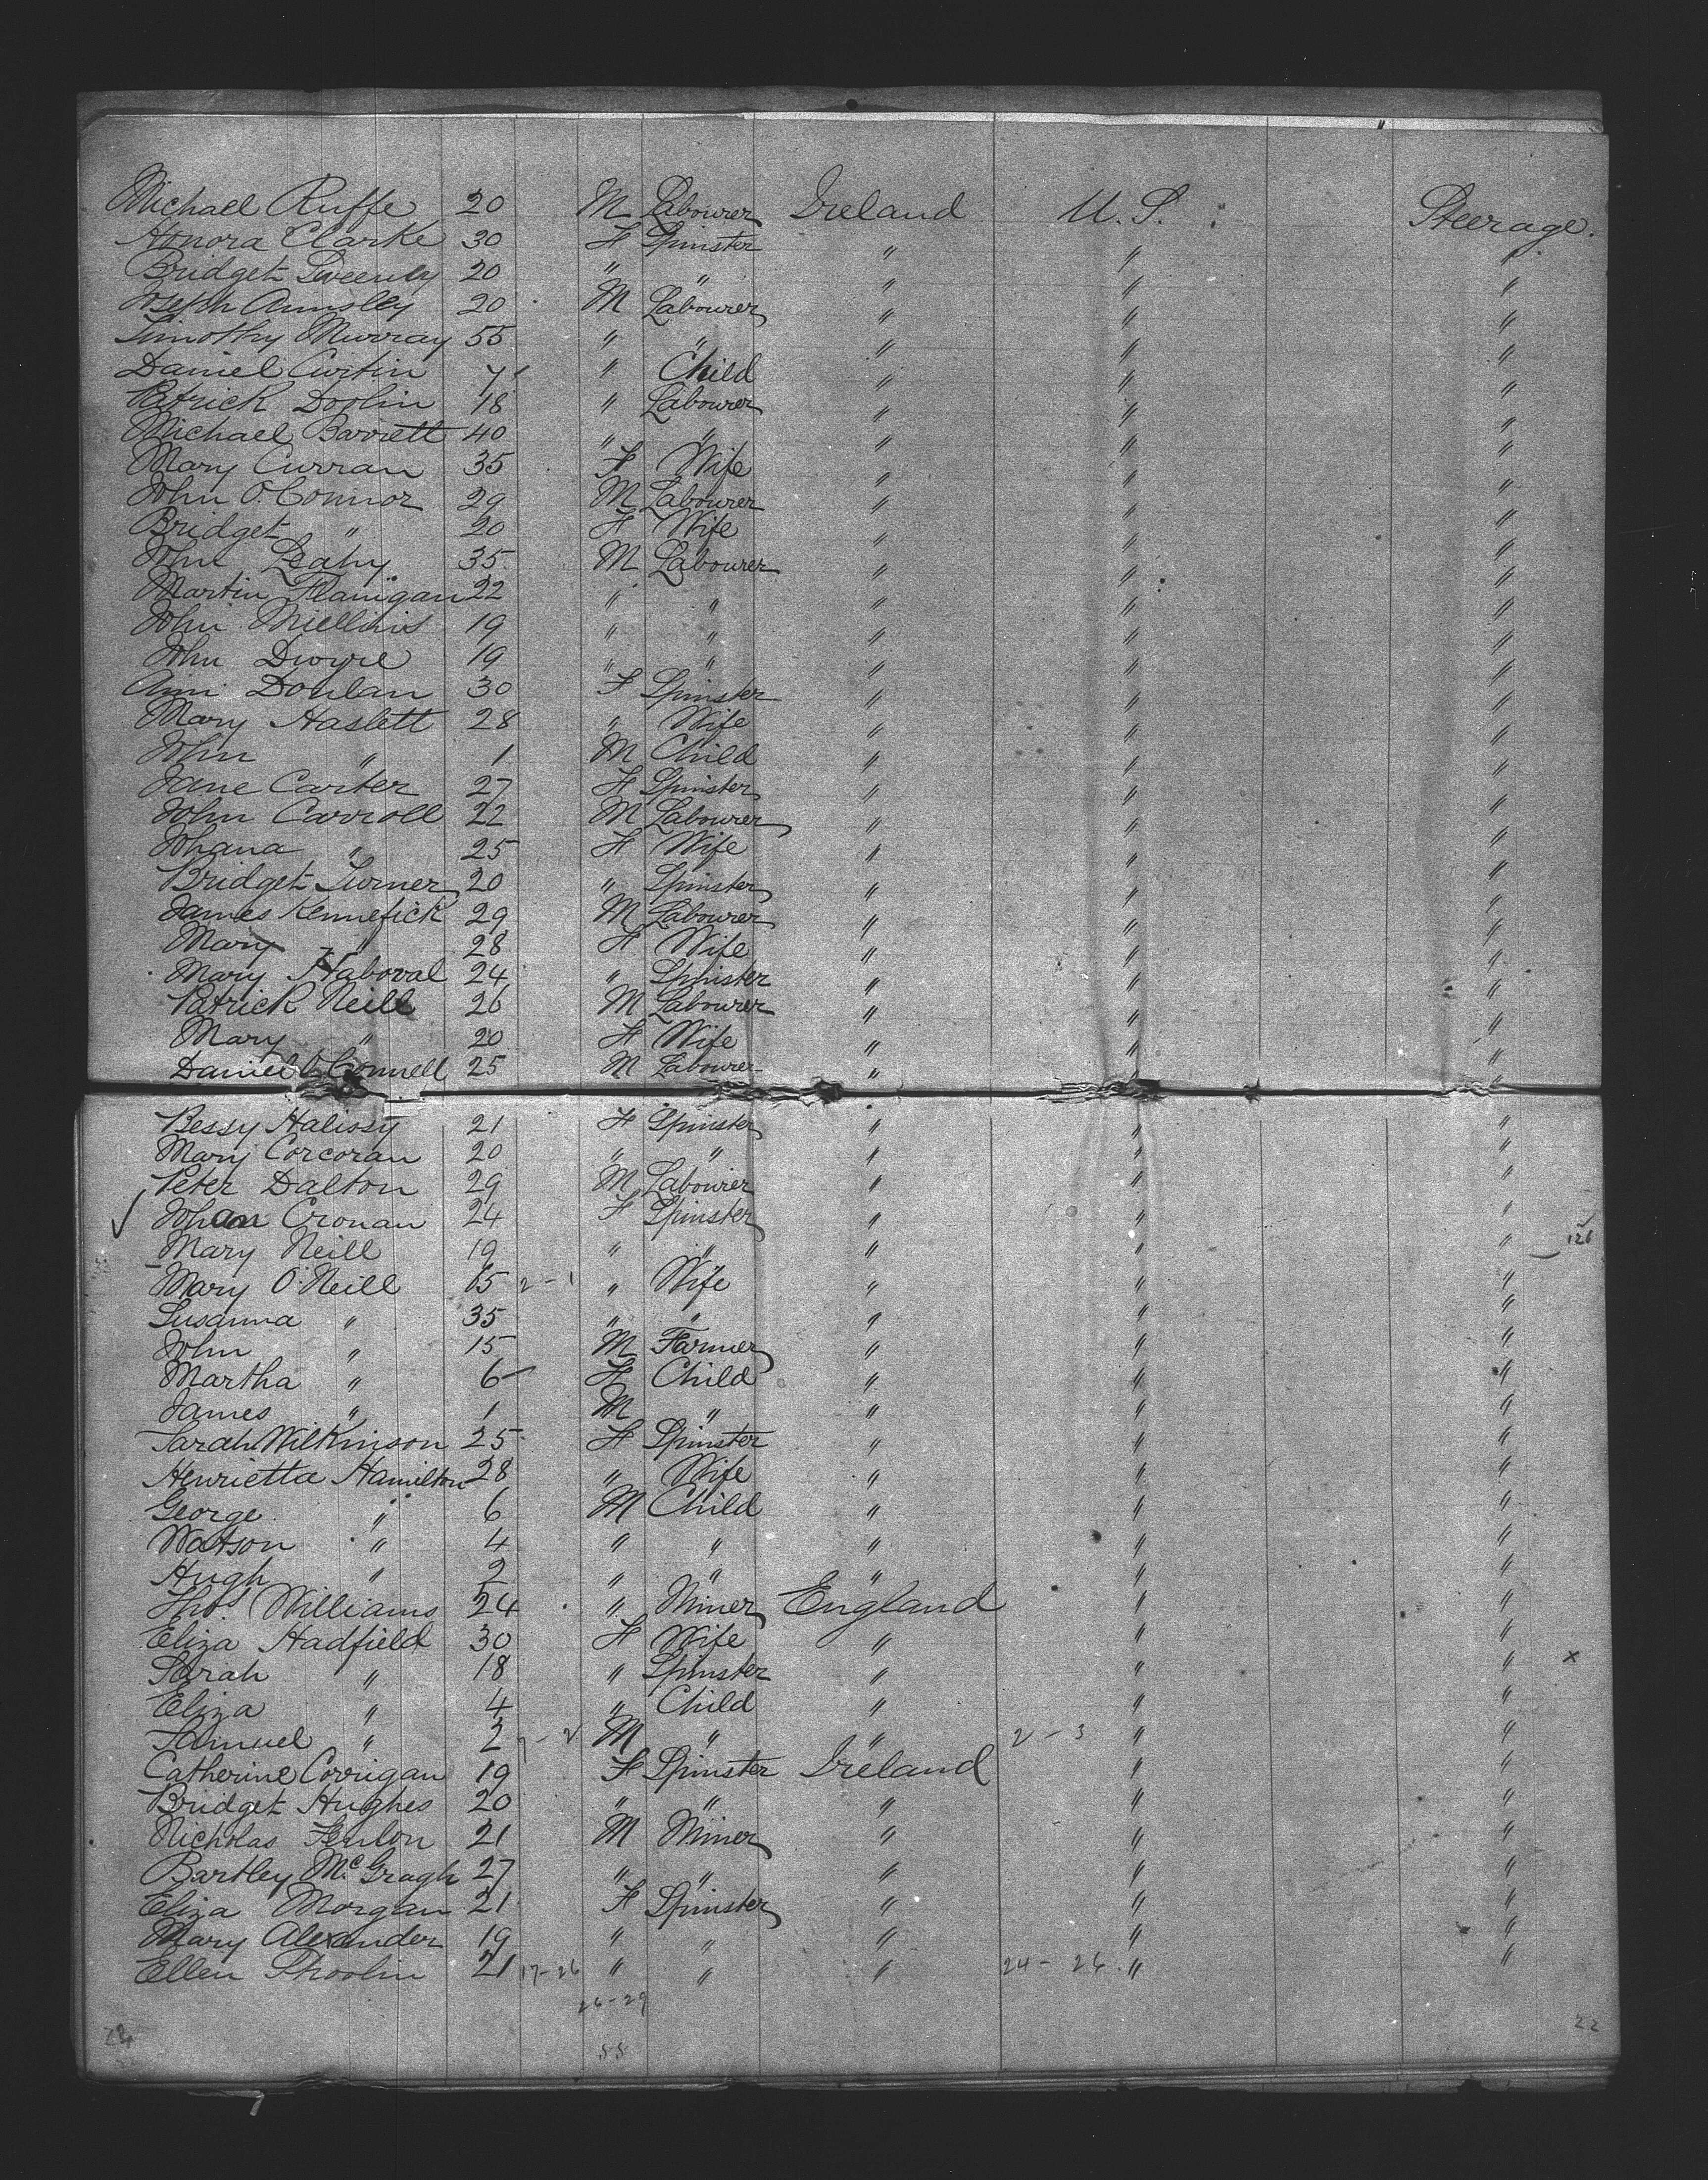 Michael Ruffe 20 M Labourer Ireland U.S. Steerage.
Honora Clarke 30 F Spinster " " "
Bridget Sweeney 20 " " " " "
Joseph Aunsley 20 M Labourer " " "
Timothy Murray 55 " " " " "
Daniel Curtin 7 " Child " " "
Patrick Doolin 18 " Labourer " " "
Michael Barrett 40 " " " " "
Mary Curran 35 F Wife " " "
John O'Connor 29 M Labourer " " "
Bridget " 20 F Wife " " "
John Leahy 35 M Labourer " " "
Martin Flanigan 22 " " " " "
John Mullins 19 " " " " "
John Dwyre 19 " " " " "
Ann Donlan 30 F Spinster " " "
Mary Haslett 28 " Wife " " "
John " 1 M Child " " "
Jane Carter 27 F Spinster " " "
John Carroll 22 M Labourer " " "
Johana " 25 F Wife " " "
Bridget Turner 20 " Spinster " " "
James Kennefick 29 M Labourer " " "
Mary " 28 F Wife " " "
Mary Haboval 24 " Spinster " " "
Patrick Neill 26 M Labourer " " "
Mary " 20 F Wife " " "
Daniel O'Connell 25 M Labourer " " "
Bessy Halissy 21 F Spinster " " "
Mary Corcoran 20 " " " " "
Peter Dalton 29 M Labourer " " "
Johan Cronan 24 F Spinster " " "
Mary Neill 19 " " " " " 126
Mary O'Neill 65 2-1 " Wife " " "
Susanna " 35 " " " " "
John " 15 M Farmer " " "
Martha " 6 F Child " " "
James " 1 M " " " "
Sarah Wilkinson 25 F Spinster " " "
Henrietta Hamilton 28 " Wife " " "
George " 6 M Child " " "
Watson " 4 " " " " "
Hugh " 2 " " " " "
Thos. Williams 24 " Miner England " "
Eliza Hadfield 30 F Wife " " "
Sarah " 18 " Spinster " " " x
Eliza " 4 " Child " " "
Samuel " 2 M " " 2-3 " "
Catherine Corrigan 19 F Spinster Ireland " "
Bridget Hughes 20 " " " " "
Nicholas Fenlon 21 M Miner " " "
Bartley McGragh 27 " " " " "
Eliza Morgan 21 F Spinster " " "
Mary Alexander 19 " " " " "
Ellen Phoolin 21 17-26 " " " 24-26 " "
26-29
22
55